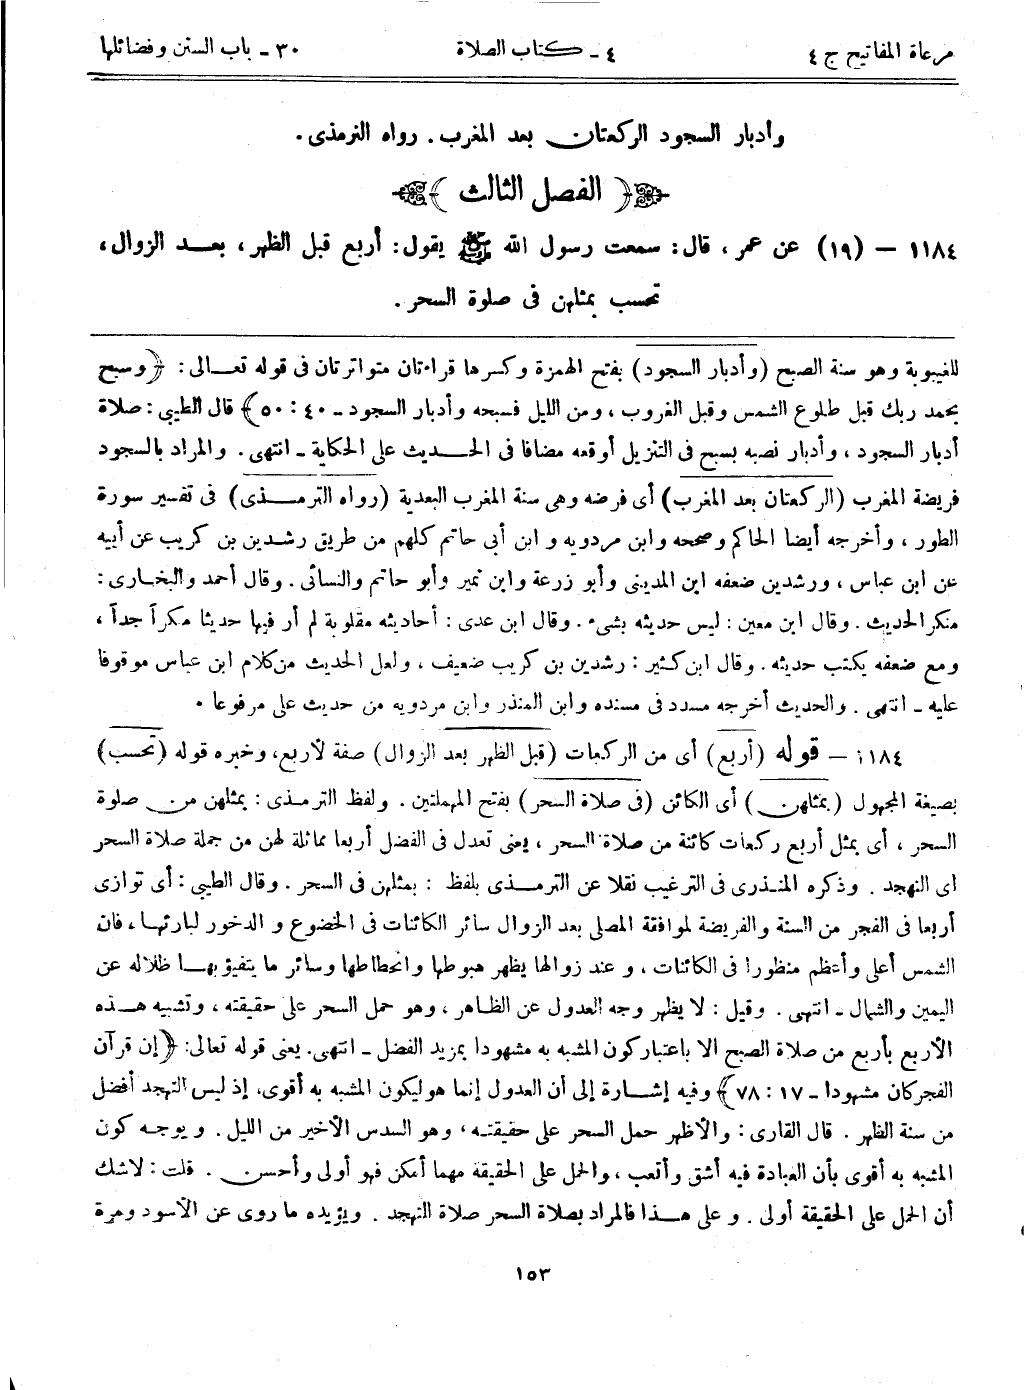 مرعاة المفاتيح ج ٤ ٤ ـ كتاب الصلاة ٣٠ ـ باب السنن وفضائلها
وأدبار السجود الركعتان بعد المغرب. رواه الترمذى.
﴿ الفصل الثالث ﴾
١١٨٤ – (١٩) عن عمر، قال: سمعت رسول الله ﷺ يقول: أربع قبل الظهر، بعد الزوال،
تحسب بمثلهن فى صلوة السحر.
للغيبوبة وهو سنة الصبح (وأدبار السجود) بفتح الهمزة وكسرها قراءتان متواترتان فى قوله تعالى: ﴿وسبح
بحمد ربك قبل طلوع الشمس وقبل الغروب، ومن الليل فسبحه وأدبار السجود ـ ٤٠ : ٥٠﴾ قال الطيبى: صلاة
أدبار السجود، وأدبار نصبه بسبح فى التنزيل أوقعه مضافا فى الحديث على الحكاية ـ انتهى. والمراد بالسجود
فريضة المغرب (الركعتان بعد المغرب) أى فرضه وهى سنة المغرب البعدية (رواه الترمذى) فى تفسير سورة
الطور، وأخرجه أيضا الحاكم وصححه وابن مردويه و ابن أبى حاتم كلهم من طريق رشدين بن كريب عن أبيه
عن ابن عباس، ورشدين ضعفه ابن المدينى وأبو زرعة وابن نمير وأبو حاتم والنسائى. وقال أحمد والبخارى:
منكر الحديث. وقال ابن معين: ليس حديثه بشىء. وقال ابن عدى: أحاديثه مقلوبة لم أر فيها حديثا مكراً جداً،
ومع ضعفه يكتب حديثه. وقال ابن كثير: رشدين بن كريب ضعيف، ولعل الحديث من كلام ابن عباس موقوفا
عليه ـ انتهى. والحديث أخرجه مسدد فى مسنده وابن المنذر وابن مردويه من حديث على مرفوعا.
١١٨٤ – قوله (أربع) أى من الركعات (قبل الظهر بعد الزوال) صفة لأربع، وخبره قوله (تحسب)
بصيغة المجهول (بمثلهن) أى الكائن (فى صلاة السحر) بفتح المهملتين. ولفظ الترمذى: بمثلهن من صلوة
السحر، أى بمثل أربع ركعات كائنة من صلاة السحر، يعنى تعدل فى الفضل أربعا مماثلة لهن من جملة صلاة السحر
اى التهجد. وذكره المنذرى فى الترغيب نقلا عن الترمذى بلفظ: بمثلهن فى السحر. وقال الطيبى: أى توازى
أربعا فى الفجر من السنة والفريضة لموافقة المصلى بعد الزوال سائر الكائنات فى الخضوع و الدخور لبارئها، فان
الشمس أعلى وأعظم منظورا فى الكائنات، و عند زوالها يظهر هبوطها وانحطاطها وسائر ما يتفيؤ بها ظلاله عن
اليمين والشمال ـ انتهى. وقيل: لا يظهر وجه العدول عن الظاهر، وهو حمل السحر على حقيقته، وتشبيه هذه
الأربع بأربع من صلاة الصبح الا باعتبار كون المشبه به مشهودا بمزيد الفضل ـ انتهى. يعنى قوله تعالى: ﴿إن قرآن
الفجر كان مشهودا ـ ١٧ : ٧٨﴾ وفيه إشارة إلى أن العدول إنما هو ليكون المشبه به أقوى، إذ ليس التهجد أفضل
من سنة الظهر. قال القارى: والأظهر حمل السحر على حقيقته، وهو السدس الأخير من الليل. ويوجه كون
المشبه به أقوى بأن العبادة فيه أشق وأتعب، والحمل على الحقيقة مهما أمكن فهو أولى وأحسن. قلت: لاشك
أن الحمل على الحقيقة أولى. و على هذا فالمراد بصلاة السحر صلاة التهجد. ويؤيده ما روى عن الأسود ومرة
١٥٣